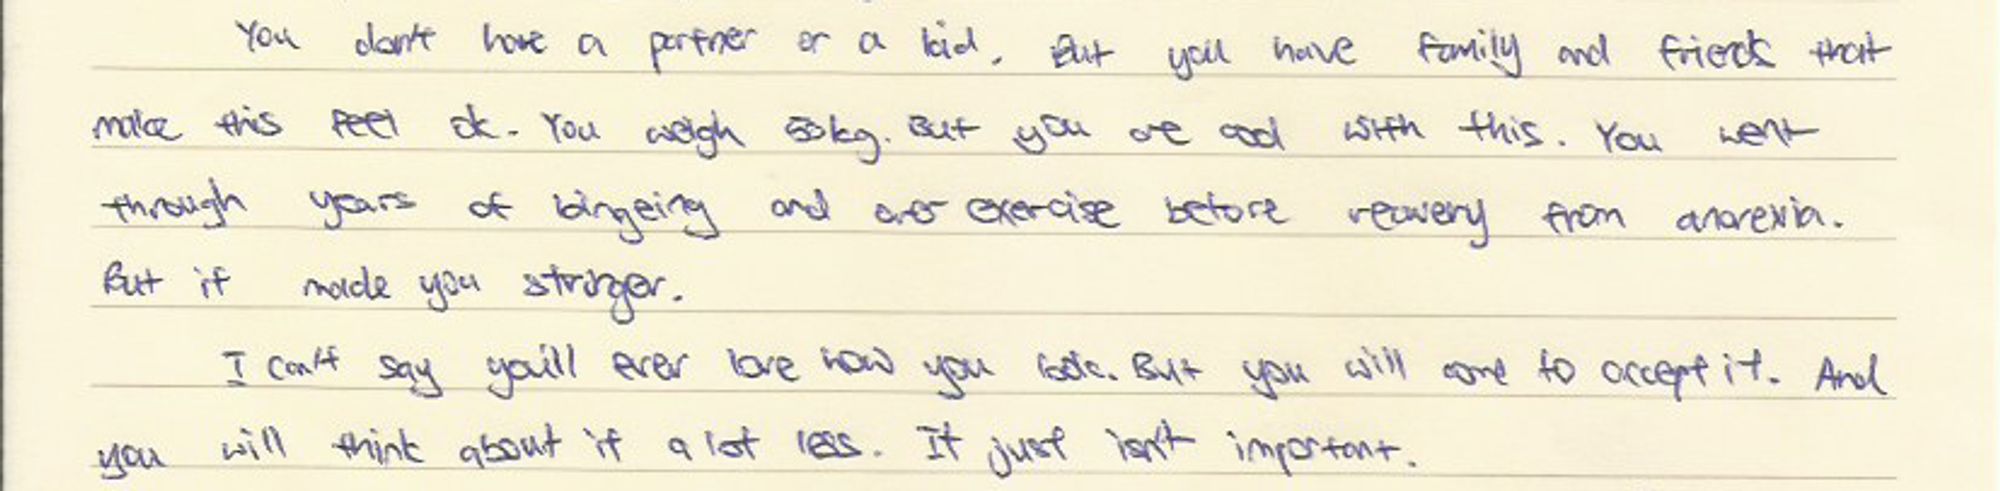 You don't have a partner or a kid. But you have family and friends that
make this feel ok. You weigh kg. But you are cool with this. You went
through years of bingeing and over exercise before recovery from anorexia.
But it made you stronger.
I can't say you'll ever love how you look. But you will come to accept it. And
you will think about it a lot less. It just isn't important.